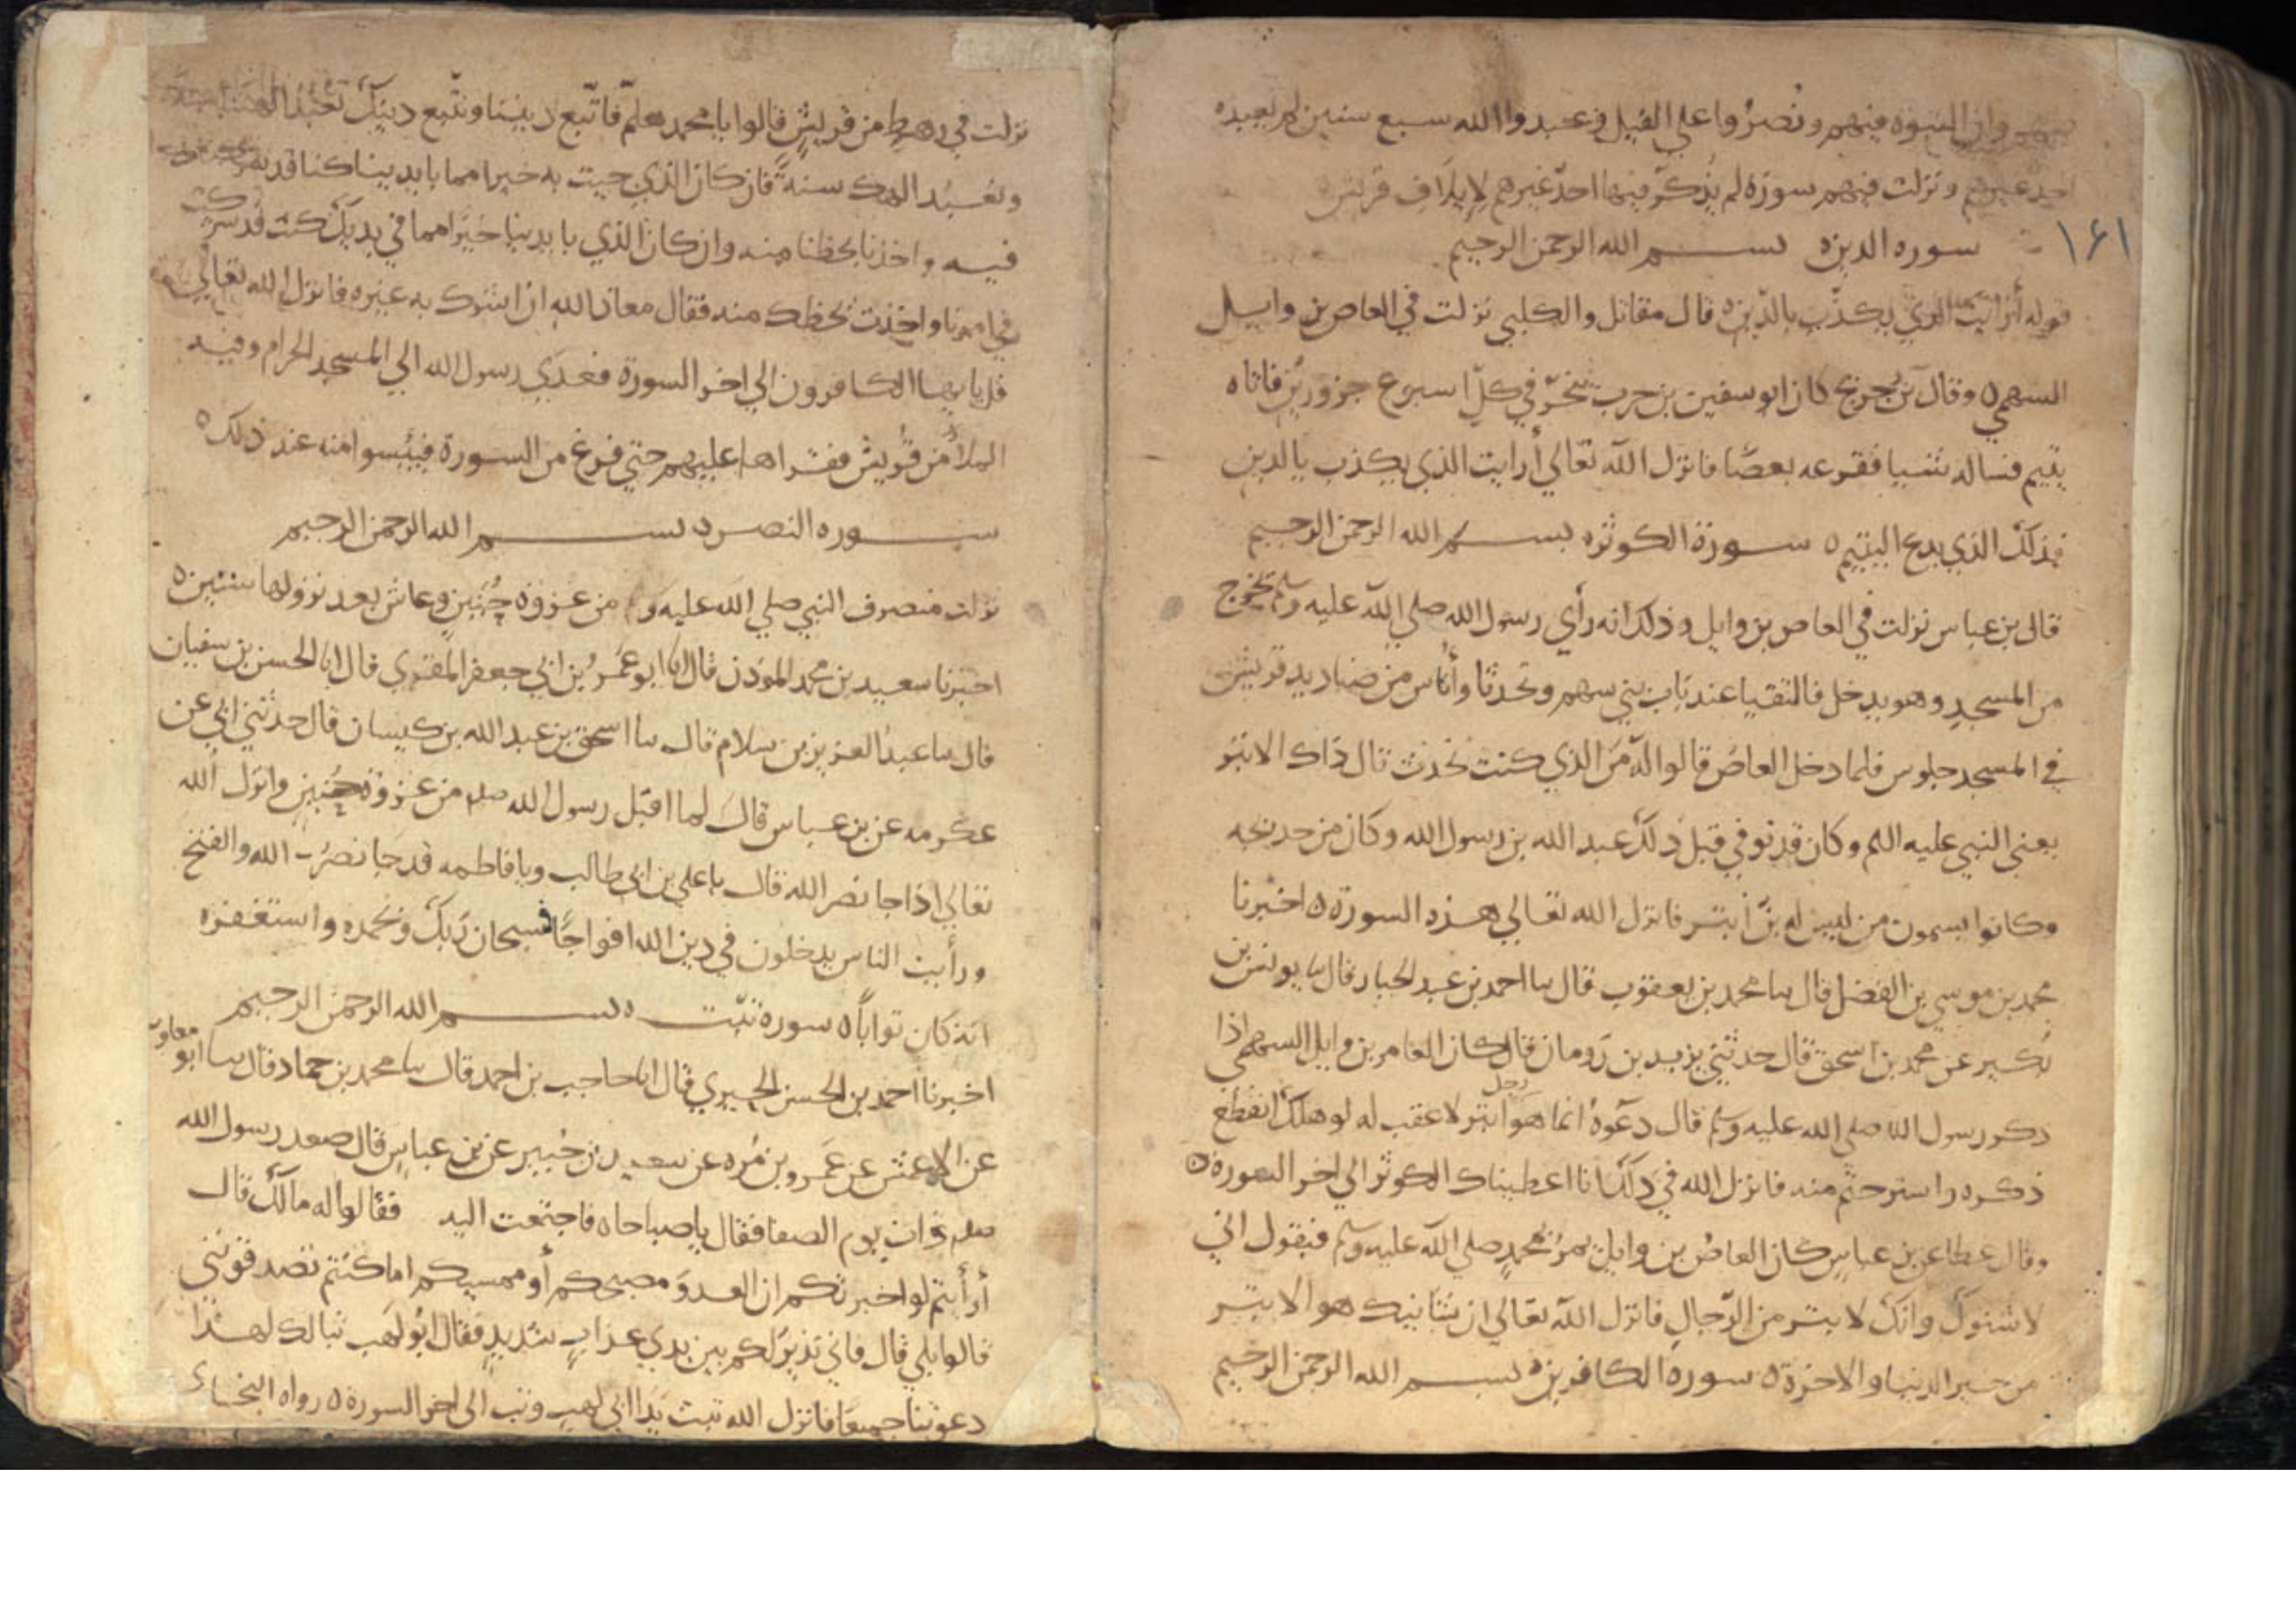 وان النبوه فيهم ونصروا علي الفيل وعبدوا الله سبع سنين لم يعبده
احد غيرهم ونزلت فيهم سورة لم يذكر فيها احد غيرهم لايلاف قريش
١٤١
سوره الدين ه بسم الله الرحمن الرحيم
قوله أرأيت الذي يكذب بالدين ه قال مقاتل والكلبي نزلت في العاص بن وايل
السهمي ه وقال بن جريج كان ابو سفين بن حرب ينحر في كل اسبوع جزورين فاتاه
يتيم فساله شيا فقرعه بعصا فانزل الله تعالي أرايت الذي يكذب بالدين
فذلك الذي يدع اليتيم ه سورة الكوثر ه بسم الله الرحمن الرحيم
قال بن عباس نزلت في العاص بن وايل وذلك انه رأي رسول الله صلي الله عليه وسلم يخرج
من المسجد وهو يدخل فالتقيا عند باب بني سهم وتحدثا وأناس من صناديد قريش
في المسجد جلوس فلما دخل العاص قالوا له من الذي كنت تحدث قال ذاك الابتر
يعني النبي عليه السلم وكان قد توفي قبل ذلك عبد الله بن رسول الله وكان من خديجه
وكانوا يسمون من ليس له بن أبتر فانزل الله تعالي هذه السورة ه اخبرنا
محمد بن موسي بن الفضل قال سا محمد بن يعقوب قال سا احمد بن عبد الجبار قال سا يونس بن
بكير عن محمد بن اسحق قال حدثني يزيد بن رومان قال كان العاص بن وايل السهمي اذا
ذكر رسول الله صلي الله عليه وسلم قال دعوه انما هو رجل ابتر لا عقب له لو هلك انقطع
ذكره واسترحتم منه فانزل الله في ذلك انا اعطيناك الكوثر الي اخر السورة ه
وقال عطا عن بن عباس كان العاص بن وايل يمر بمحمد صلي الله عليه وسلم فيقول اني
لاشنوك وانك لابتر من الرجال فانزل الله تعالي ان شانيك هو الابتر
من خير الدنيا والاخرة ه سورة الكافرين ه بسم الله الرحمن الرحيم
نزلت في رهط من قريش قالوا يا محمد هلم فاتبع ديننا ونتبع دينك تعبد الهتنا سنة
ونعبد الهك سنة فان كان الذي جيت به خيرا مما بايدينا كنا قد شركناك
فيه واخذنا بحظنا منه وان كان الذي بايدينا خيرا مما في يديك كنت قد شركت
في امرنا واخذت بحظك منه فقال معاذ الله ان اشرك به غيره فانزل الله تعالي
قل يا يها الكافرون الي اخر السورة فغدي رسول الله الي المسجد الحرام وفيه
الملأ من قريش فقراها عليهم حتي فرغ من السورة فيئسوا منه عند ذلك ه
سوره النصر ه بسم الله الرحمن الرحيم
نزلت منصرف النبي صلي الله عليه و من غزوة حنين وعاش بعد نزولها سنتين ه
اخبرنا سعيد بن محمد الموذن قال انا ابو عمر بن ابي جعفر المقري قال انا الحسن بن سفيان
قال سا عبد العزيز بن سلام قال سا اسحق بن عبد الله بن كيسان قال حدثني ابي عن
عكرمه عن بن عباس قال لما اقبل رسول الله صلم من غزوة حنين وانزل الله
تعالي اذا جا نصر الله قال يا علي بن ابي طالب ويا فاطمه قد جا نصر الله والفتح
ورأيت الناس يدخلون في دين الله افواجا فسبحان ربك وبحمده واستغفره
انه كان توابا ه سورة تبت ه بسم الله الرحمن الرحيم
اخبرنا احمد بن الحسن الحيري قال انا حاجب بن احمد قال سا محمد بن حماد قال سا ابو معاويه
عن الاعمش عن عمرو بن مره عن سعيد بن جبير عن بن عباس قال صعد رسول الله
صلم ذات يوم الصفا فقال يا صباحاه فاجتمعت اليه فقالوا له مالك قال
أرأيتم لو اخبرتكم ان العدو مصبحكم أو ممسيكم اما كنتم تصدقونني
قالوا بلي قال فاني نذير لكم بين يدي عذاب شديد فقال ابو لهب تبا لك لهذا
دعوتنا جميعا فانزل الله تبت يدا ابي لهب وتب الي اخر السورة ه رواه البخاري